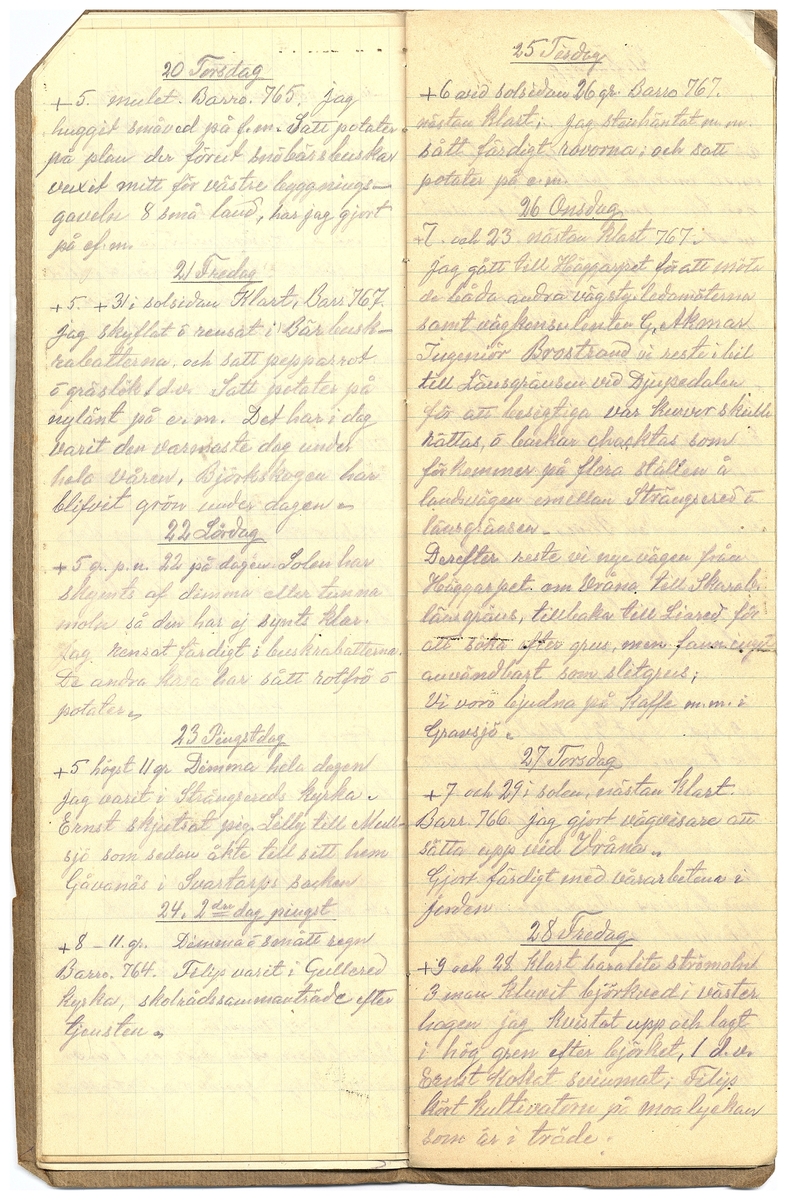 20 Torsdag
+5. mulet. Barro. 765. Jag
huggit småved på f.m. Satt potater
på plan der förut snöbärsbuskar
vuxit mitt för västre byggnings-
gaveln 8 små land, har jag gjort
på ef.m.
21 Fredag
+5. +31 i solsidan Klart, Barr 767.
Jag skyllat ö rensat i Bärbusk-
rabatterna och satt pepparrot
ö gräslök 1 d.v. Satt potater på
nylänt på e.m. Det har i dag
varit den varmaste dag under
hela våren, Björkskogen har
blifvit grön under dagen.
22 Lördag
+5 gr. p.n. 22 på dagen. Solen har
skymts af dimma eller tunna
moln så den har ej synts klar.
Jag rensat färdigt i buskrabatterna.
De andra har sått rotfrö ö
potater.
23 Pingstdag
+5 högst 11 gr Dimma hela dagen
Jag varit i Strängsereds kyrka.
Ernst skjutsat pig. Lilly till Mull-
sjö som sedan åkte till sitt hem
Gåvanäs i Svartarps socken
24. 2dra dag pingst
+8 - 11. gr. Dimma ö smått regn
Barro. 764. Filip varit i Gullered
kyrka, skolrådssammanträde efter
tjensten.
25 Tisdag
+6 avid solsidan 26 gr. Barro 767.
nästan klart; jag m.m.
sått färdigt rovorna; och satt
potater på e.m.
26 Onsdag
+7. och 23. nästan klart 767.
Jag gått till Häggarpet för att möta
de båda andra vägstyr.ledamöterna
samt vägkonsulenten G. Akmar
Ingeniör Brostrand vi reste i bil
till Länsgränsen vid Djupedalen
för att besigtiga var kurvor skulle
rättas, ö backar schacktas som
förkommer på flera ställen å
landvägen emellan Strängsered ö
länsgränsen.
Derefter reste vi nye vägen från
Häggarpet om Vråna till Skarab.
länsgräns, tillbaka till Liared för
att söka efter grus, men fann inget
användbart som slitgrus;
Vi voro bjudna på Kaffe m.m. i
Gravsjö.
27 Torsdag
+7 och 29 i solen, nästan klart.
Barr. 766. jag gjort vägvisare att
sätta upp vid Vråna.
Gjort färdigt med vårarbetena i
jorden
28 Fredag
+9 och 28. klart bara lite strömoln
3 man kluvit björkved i väster
hagen jag kvistat upp och lagt
i hög gren efter björket, 1 d.v.
Ernst kokat svinmat; Filip
kört kultivatorn på moalyckan
som är i träde.